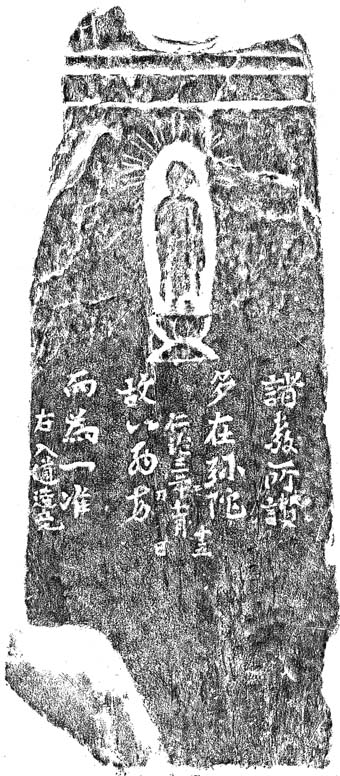 諸教所讃
多在弥陀
仁治三年
十二月
日
故以西方
而為一准
右入道